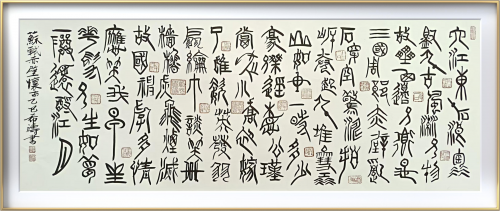 大江東去浪淘
盡千古風流人物
故壘西邊人道是
三國周郎赤壁亂
石穿空驚濤拍
岸捲起千堆雪江
山如畫一時多少
豪傑遙想公瑾
當年小喬初嫁
了雄姿英發羽
扇綸巾談笑間
檣櫓灰飛煙滅
故國神遊多情
應笑我早生
華髮人生如夢
一尊還酹江月
蘇軾赤壁懷古乙巳希濤書